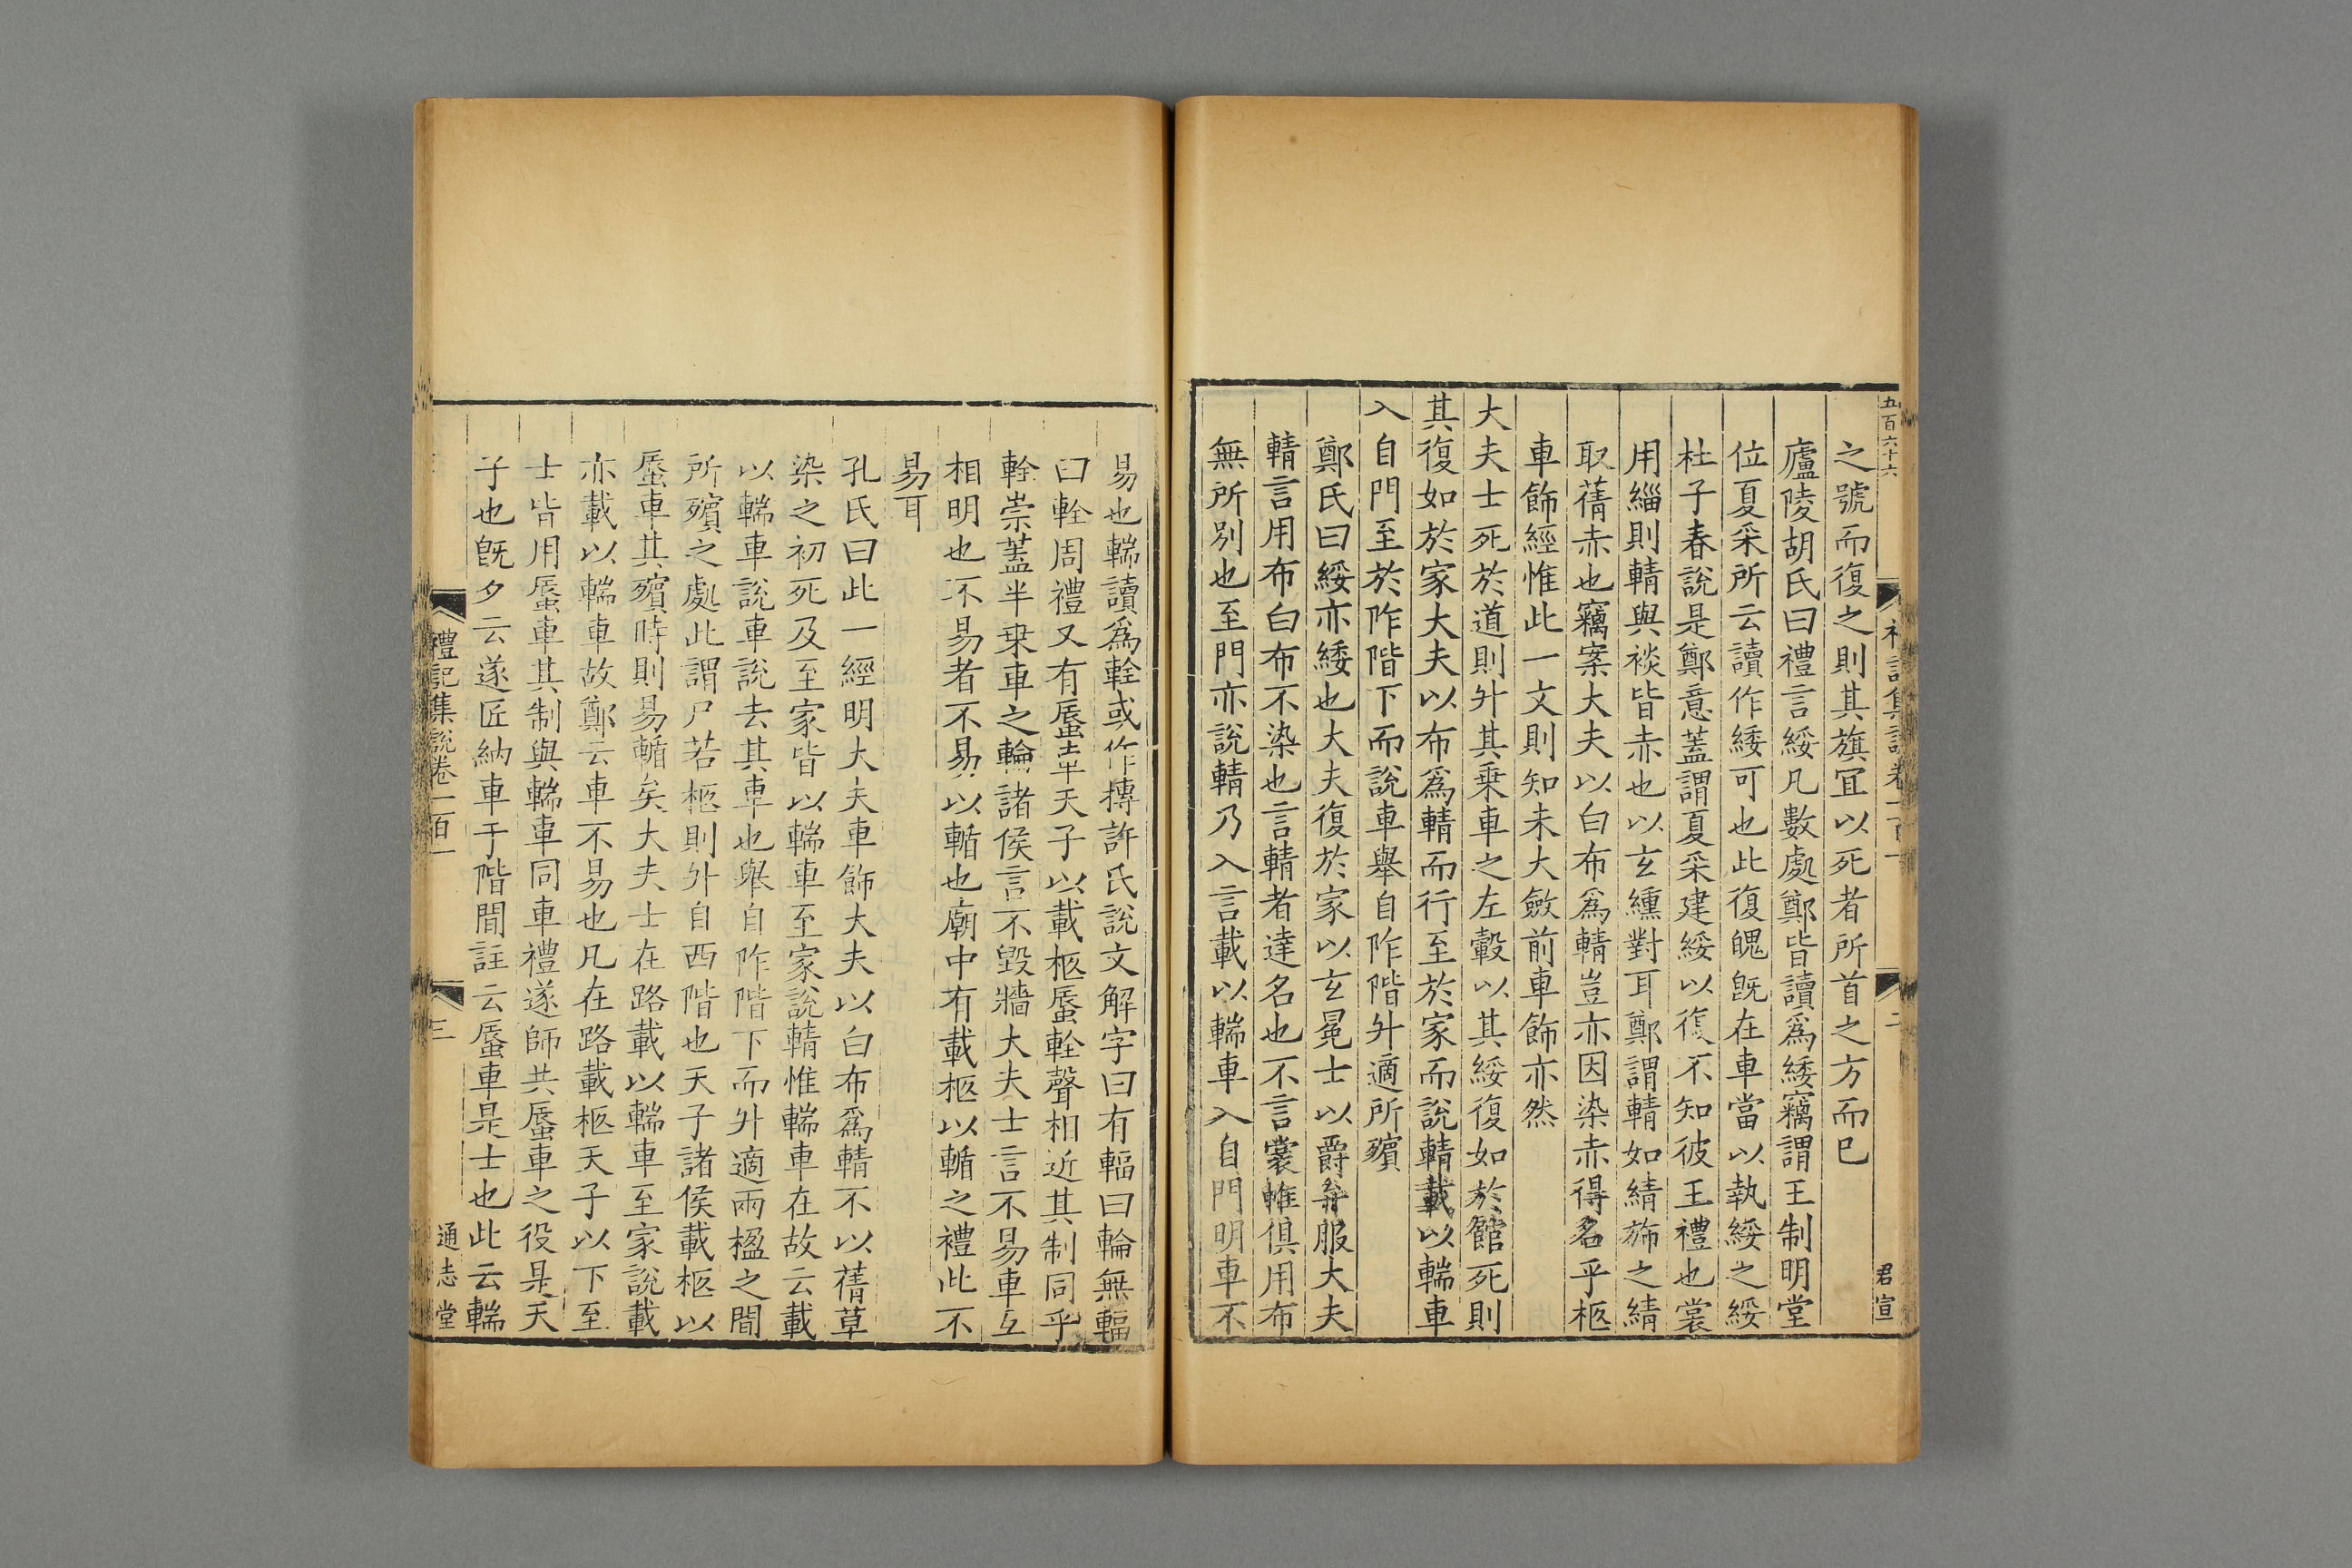 五百六十六
禮記集說卷一百一
二
君宣
之號而復之則其旗宜以死者所首之方而已
廬陵胡氏曰禮言綏凡數處鄭皆讀為緌竊謂王制明堂
位夏采所云讀作緌可也此復魄旣在車當以執綏之綏
杜子春說是鄭意蓋謂夏采建綏以復不知彼王禮也裳
用緇則輤與裧皆赤也以玄纁對耳鄭謂輤如綪旆之綪
取蒨赤也竊案大夫以白布爲輤豈亦因染赤得名乎柩
車飾經惟此一文則知未大斂前車飾亦然
大夫士死於道則升其乗車之左轂以其綏復如於館死則
其復如於家大夫以布爲輤而行至於家而說輤載以輲車
入自門至於阼階下而說車舉自阼階升適所殯
鄭氏曰綏亦緌也大夫復於家以玄冕士以爵弁服大夫
輤言用布白布不染也言輤者達名也不言裳帷俱用布
無所別也至門亦說輤乃入言載以輲車入自門明車不
易也輲讀爲輇或作摶許氏說文解字曰有輻曰輪無輻
曰輇周禮又有蜃車天子以載柩蜃輇聲相近其制同乎
輇崇蓋半乗車之輪諸侯言不毀牆大夫士言不易車互
相明也不易者不易以輴也廟中有載柩以輴之禮此不
易耳
孔氏曰此一經明大夫車飾大夫以白布爲輤不以蒨草
染之初死及至家皆以輲車至家說輤惟輲車在故云載
以輲車說車說去其車也舉自阼階下而升適兩楹之間
所殯之處此謂尸若柩則升自西階也天子諸侯載柩以
蜃車其殯時則易輴矣大夫士在路載以輲車至家說載
亦載以輲車故鄭云車不易也凡在路載柩天子以下至
士皆用蜃車其制與輲車同車禮遂師共蜃車之役是天
子也旣夕云遂匠納車于階間註云蜃車是士也此云輲
禮記集說卷一百一
三
通志堂